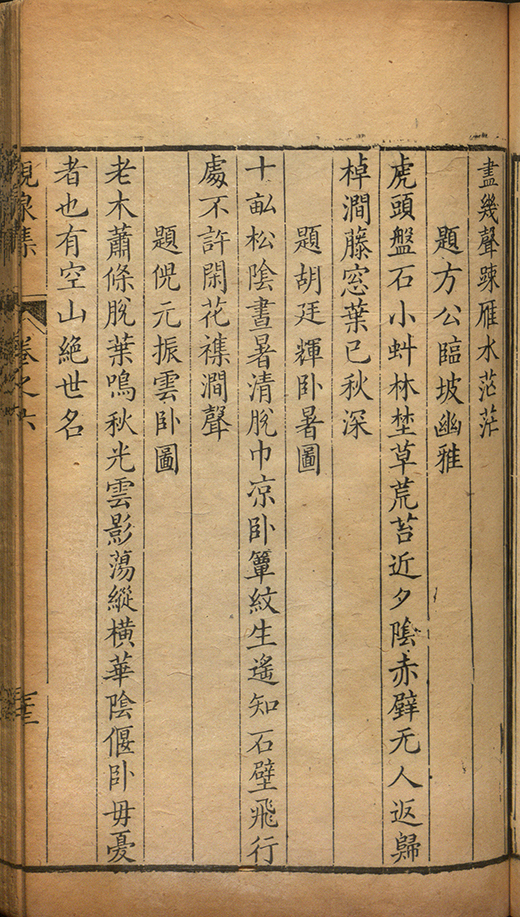 盡幾聲踈雁水茫茫
題方公臨坡幽雅
虎頭盤石小虯林埜草荒苔近夕陰赤壁无人返歸
棹澗藤窓葉已秋深
題胡廷輝卧暑圖
十畆松陰晝暑清脫巾凉卧簟紋生遙知石壁飛行
處不許閑花襍澗聲
題倪元振雲卧圖
老木蕭條脫葉鳴秋光雲影蕩縱橫華陰偃卧毋憂
者也有空山絶世名
卷之六